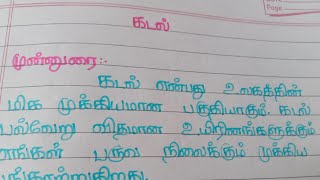 Page
கடல்
முன்னுரை:-
கடல் என்பது உலகத்தின்
மிக முக்கியமான பகுதியாகும். கடல்
பல்வேறு விதமான உயிரினங்களுக்கும்
எங்கள் பருவ நிலைக்கும் முக்கிய
பங்காற்றுகிறது.